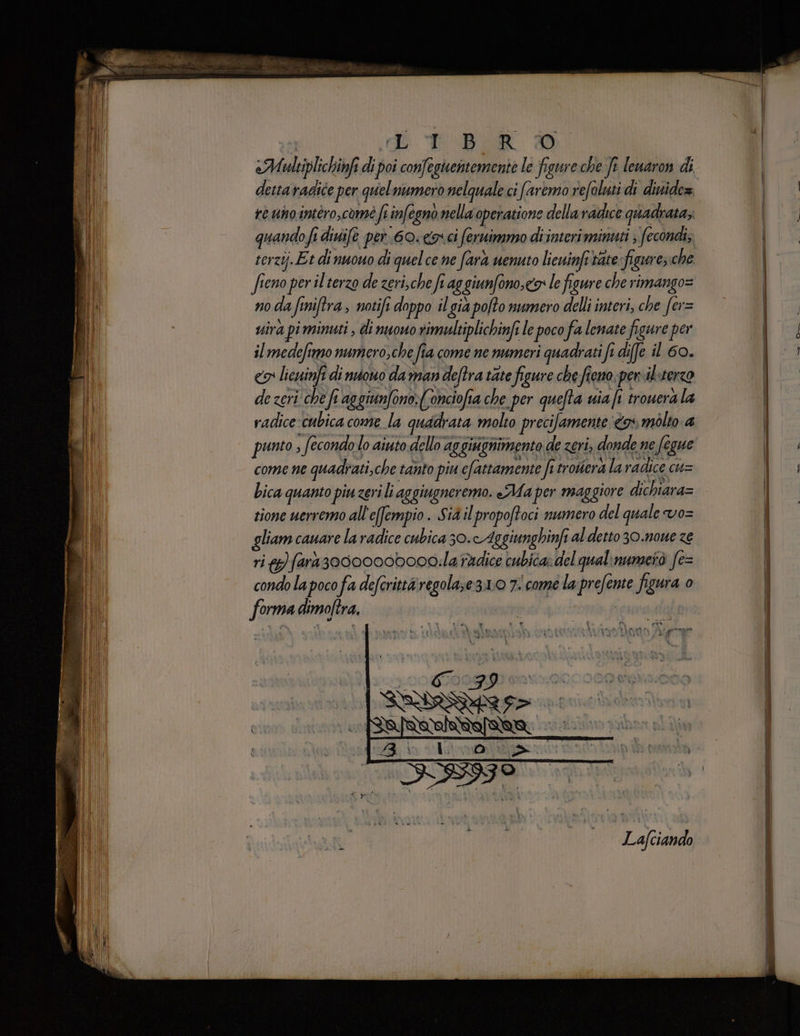 LIBRO
Multiplichinſi di poi conſeguentemente le figure che ſi leuaron di
detta radice per quel numero nelquale ci ſaremo reſoluti di diuide=
re uno intero, come ſi inſegnò nella operatione della radice quadrata,
quando ſi diuiſe per 60. & ci ſeruimmo di interi minuti, ſecondi,
terzij. Et di nuouo di quel ce ne ſarà uenuto lieuinſi tãte figure, che
ſieno per il terzo de zeri, che ſi aggiunſono, & le figure che rimango=
no da ſiniſtra, notiſi doppo il già poſto numero delli interi, che ſer=
uirà pi minuti, di nuouo rimultiplichinſi le poco fa lenate figure per
il medeſimo numero, che ſia come ne numeri quadrati ſi diſſe il 60.
& lieuinſi di nuouo da man deſtra tãte figure che ſieno per il terzo
de zeri che ſi aggiunſono. Concioſia che per queſta uia ſi trouerà la
radice cubica come la quadrata molto preciſamente & molto a
punto, ſecondo lo aiuto dello aggiugnimento de zeri, donde ne ſegue
come ne quadrati, che tanto piu eſattamente ſi trouerà la radice cu=
bica quanto piu zeri li aggiugneremo. Ma per maggiore dichiara=
tione uerremo all'eſſempio. Sia il propoſtoci numero del quale vo=
gliam cauare la radice cubica 30. Aggiunghinſi al detto 30. noue ze
ri & farà 30000000000. la radice cubica del qual numero ſe=
condo la poco fa deſcritta regola, e 3107. come la preſente figura o
forma dimoſtra.
3 1 0 7
Laſciando